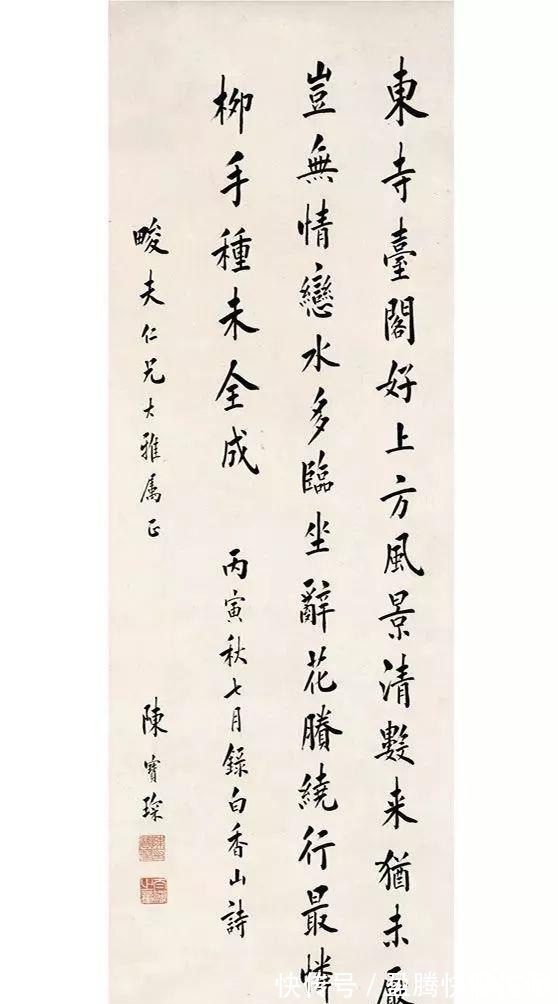 東寺臺閣好上方風景清數来猶未厭
豈無情戀水多臨坐辭花賸繞行最憐
柳手種未全成
丙寅秋七月錄白香山詩
畯夫仁兄大雅属正
陳寶琛
快传号/